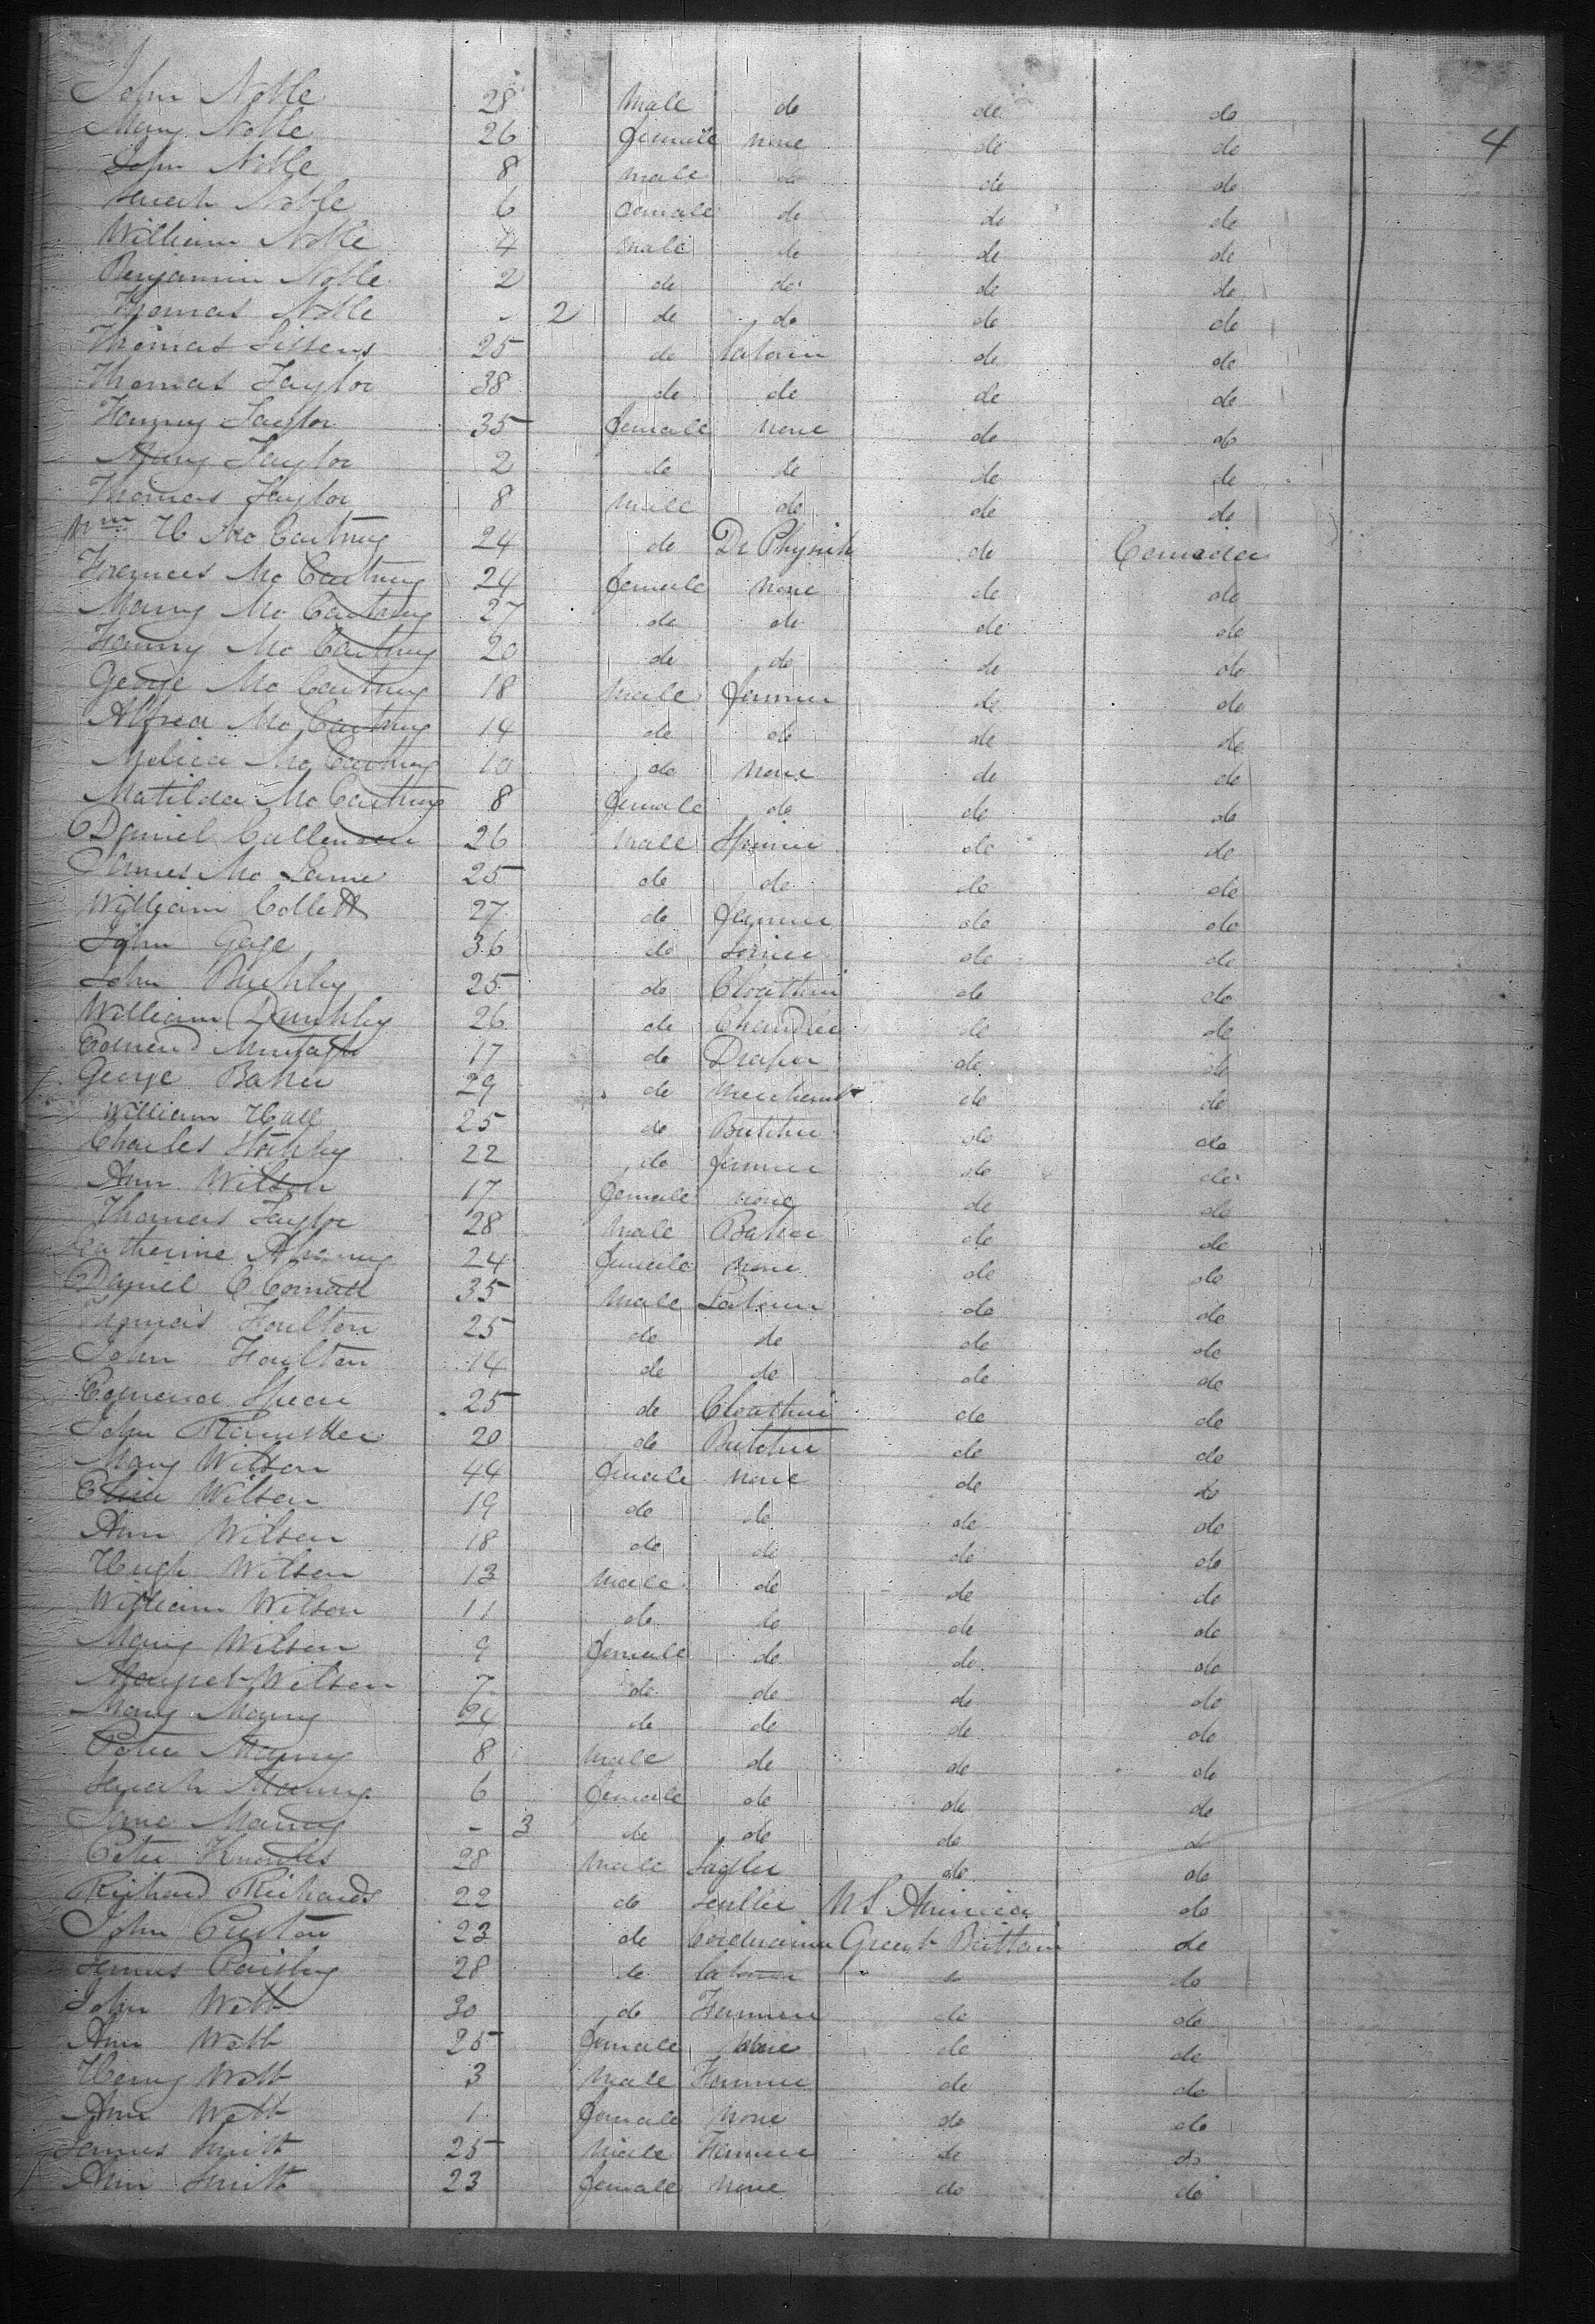 4
John Noble 28 Male do do do
Mary Noble 26 female none do do
John Noble 8 male do do do
Sarah Noble 6 female do do do
William Noble 4 Male do do do
Benjamin Noble 2 do do do do
Thomas Noble - 2 do do do do
Thomas Sissens 25 do labourer do do
Thomas Taylor 38 do do do do
Fanny Taylor 35 female none do do
Mary Taylor 2 do do do do
Thomas Taylor 8 Male do do do
Wm H McCartney 24 do Dr Physick do Canada
Frances McCartney 24 female none do do
Mary McCartney 27 do do do do
Fanny McCartney 20 do do do do
George McCartney 18 Male farmer do do
Alfred McCartney 14 do do do do
McCartney 10 do none do do
Matilda McCartney 8 female do do do
Daniel Callendar 26 Male do do
James McLame 25 do do do do
William Collett 27 do farmer do do
John Gage 36 do do do
John 25 do Cloathier do do
William 26 do do do
Edmund Murtagh 17 do Draper do do
George Baker 29 do Merchant do do
William Hall 25 do Butcher do do
Charles 22 do farmer do do
Ann Wilson 17 female none do do
Thomas Taylor 28 Male Baker do do
Catherine 24 female none do do
Daniel OConnell 35 Male Labourer do do
Thomas Foulton 25 do do do do
John Foulton 14 do do do do
Edmund Spear 25 do Cloathier do do
John 20 do Butcher do do
Mary Wilson 44 female none do do
Eliza Wilson 19 do do do do
Ann Wilson 18 do do do do
Hugh Wilson 13 Male do do do
William Wilson 11 do do do do
Mary Wilson 9 female do do do
Margret Wilson 7 do do do do
Mary do do do do
Peter 8 Male do do do
Sarah 6 female do do do
Jane - 3 do do do do
Peter Knowles 28 Male do do
Richard Richards 22 do US America do
John 23 do Cordwainer Great Brittain do
James 28 do labourer do do
John Webb 30 do Farmer do do
Ann Webb 25 female None do do
Henry Webb 3 Male Farmer do do
Ann Webb 1 female None do do
James Smith 25 Male Farmer do do
Ann Smith 23 female None do do